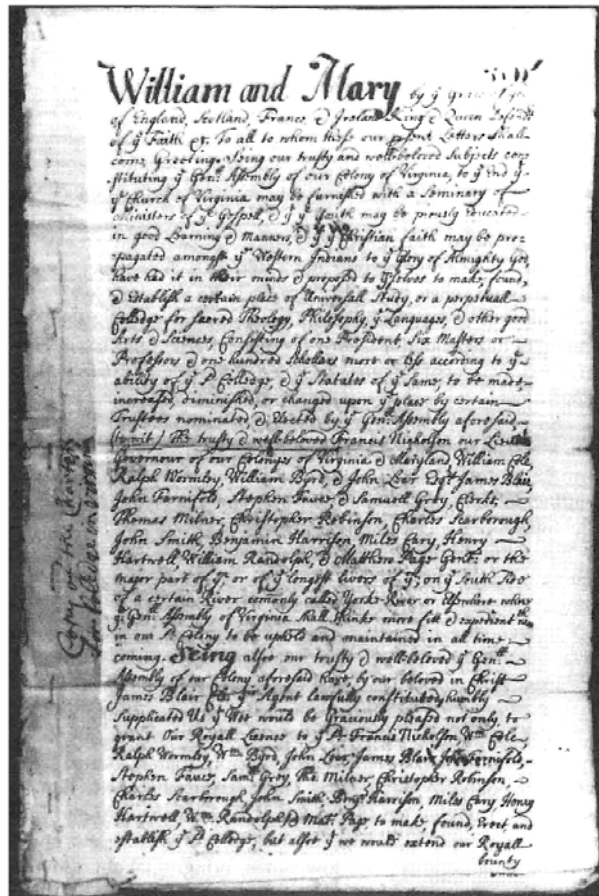 William and Mary by yͤ Grace
of England, Scotland, France, & Ireland King & Queen Defendʳˢ
of yͤ Faith &c. To all to whom these our present Letters shall
come Greeting. Seing our trusty and well-beloved Subjects con
stituting yͤ Genˡˡ Assembly of our Colony of Virginia, to yͤ End yͭ
yͤ Church of Virginia may be furnished with a Seminary of
Ministers of yͤ Gospell, & yͭ yͤ Youth may be piously Educated
in good Learning & Manners, & yͭ yͤ Christian faith may be pro=
=pagated amongst yͤ Western Indians to yͤ Glory of Almighty God,
have had it in their minds & proposed to yͫselves to make, found,
& Establish a certain place of Universall Study, or a perpetuall
Colledge for sacred Theology, Philosophy, yͤ Languages, & other good
Arts & Sciences, Consisting of one President, Six Masters or
Professors & one hundred Schollars more or less according to yͤ
ability of yͤ sᵈ Colledge, & yͤ Statutes of yͤ same, to be made,
increased, diminished, or changed upon yͤ place by certain
Trustees nominated & Elected by yͤ Genˡˡ Assembly aforesaid
(to wit) The trusty & well-beloved Francis Nicholson our Lieutᵗ
Governour of our Colonyes of Virginia & Maryland, William Cole,
Ralph Wormley, William Byrd, & John Lear Esqʳˢ James Blair,
John Farnifold, Stephen Fauce & Samuell Grey, Clerks;
Thomas Milner, Christopher Robinson, Charles Scarborough,
John Smith, Benjamin Harrison, Miles Cary, Henry
Hartwell, William Randolph, & Matthew Page Gentˢ or the
major part of yͫ, or of yͤ longest livers of yͫ, on yͤ South Side
of a certain River comonly called Yorke River or Elsewhere where
yͤ Genˡˡ Assembly of Virginia shall thinke more fitt & expedient wᵗʰ
in our sᵈ Colony to be upheld and maintained in all time
coming. Seing alsoe our trusty & well-beloved yͤ Genˡˡ
Assembly of our Colony aforesaid have, by our beloved in Christ
James Blair Clk yʳ Agent lawfully constituted, humbly
Supplicated Us yͭ Wee would be Graciously pleased not only to
grant Our Royall Licence to yͤ sᵈ Francis Nicholson, Wᵐ Cole
Ralph Wormley, Wᵐ Byrd, John Lear, James Blair, John Farnifold,
Stephen Fauce, Samˡ Grey, Tho Milner, Christopher Robinson,
Charles Scarbrough, John Smith, Benjⁿ Harrison, Miles Cary Henry
Hartwell Wᵐ Randolph & Matʷ Page to make, found, Erect, and
establish yͤ sᵈ Colledge, but alsoe yͭ we would extend our Royall
bounty
Copy of the Charter
for Colledge in Virginia